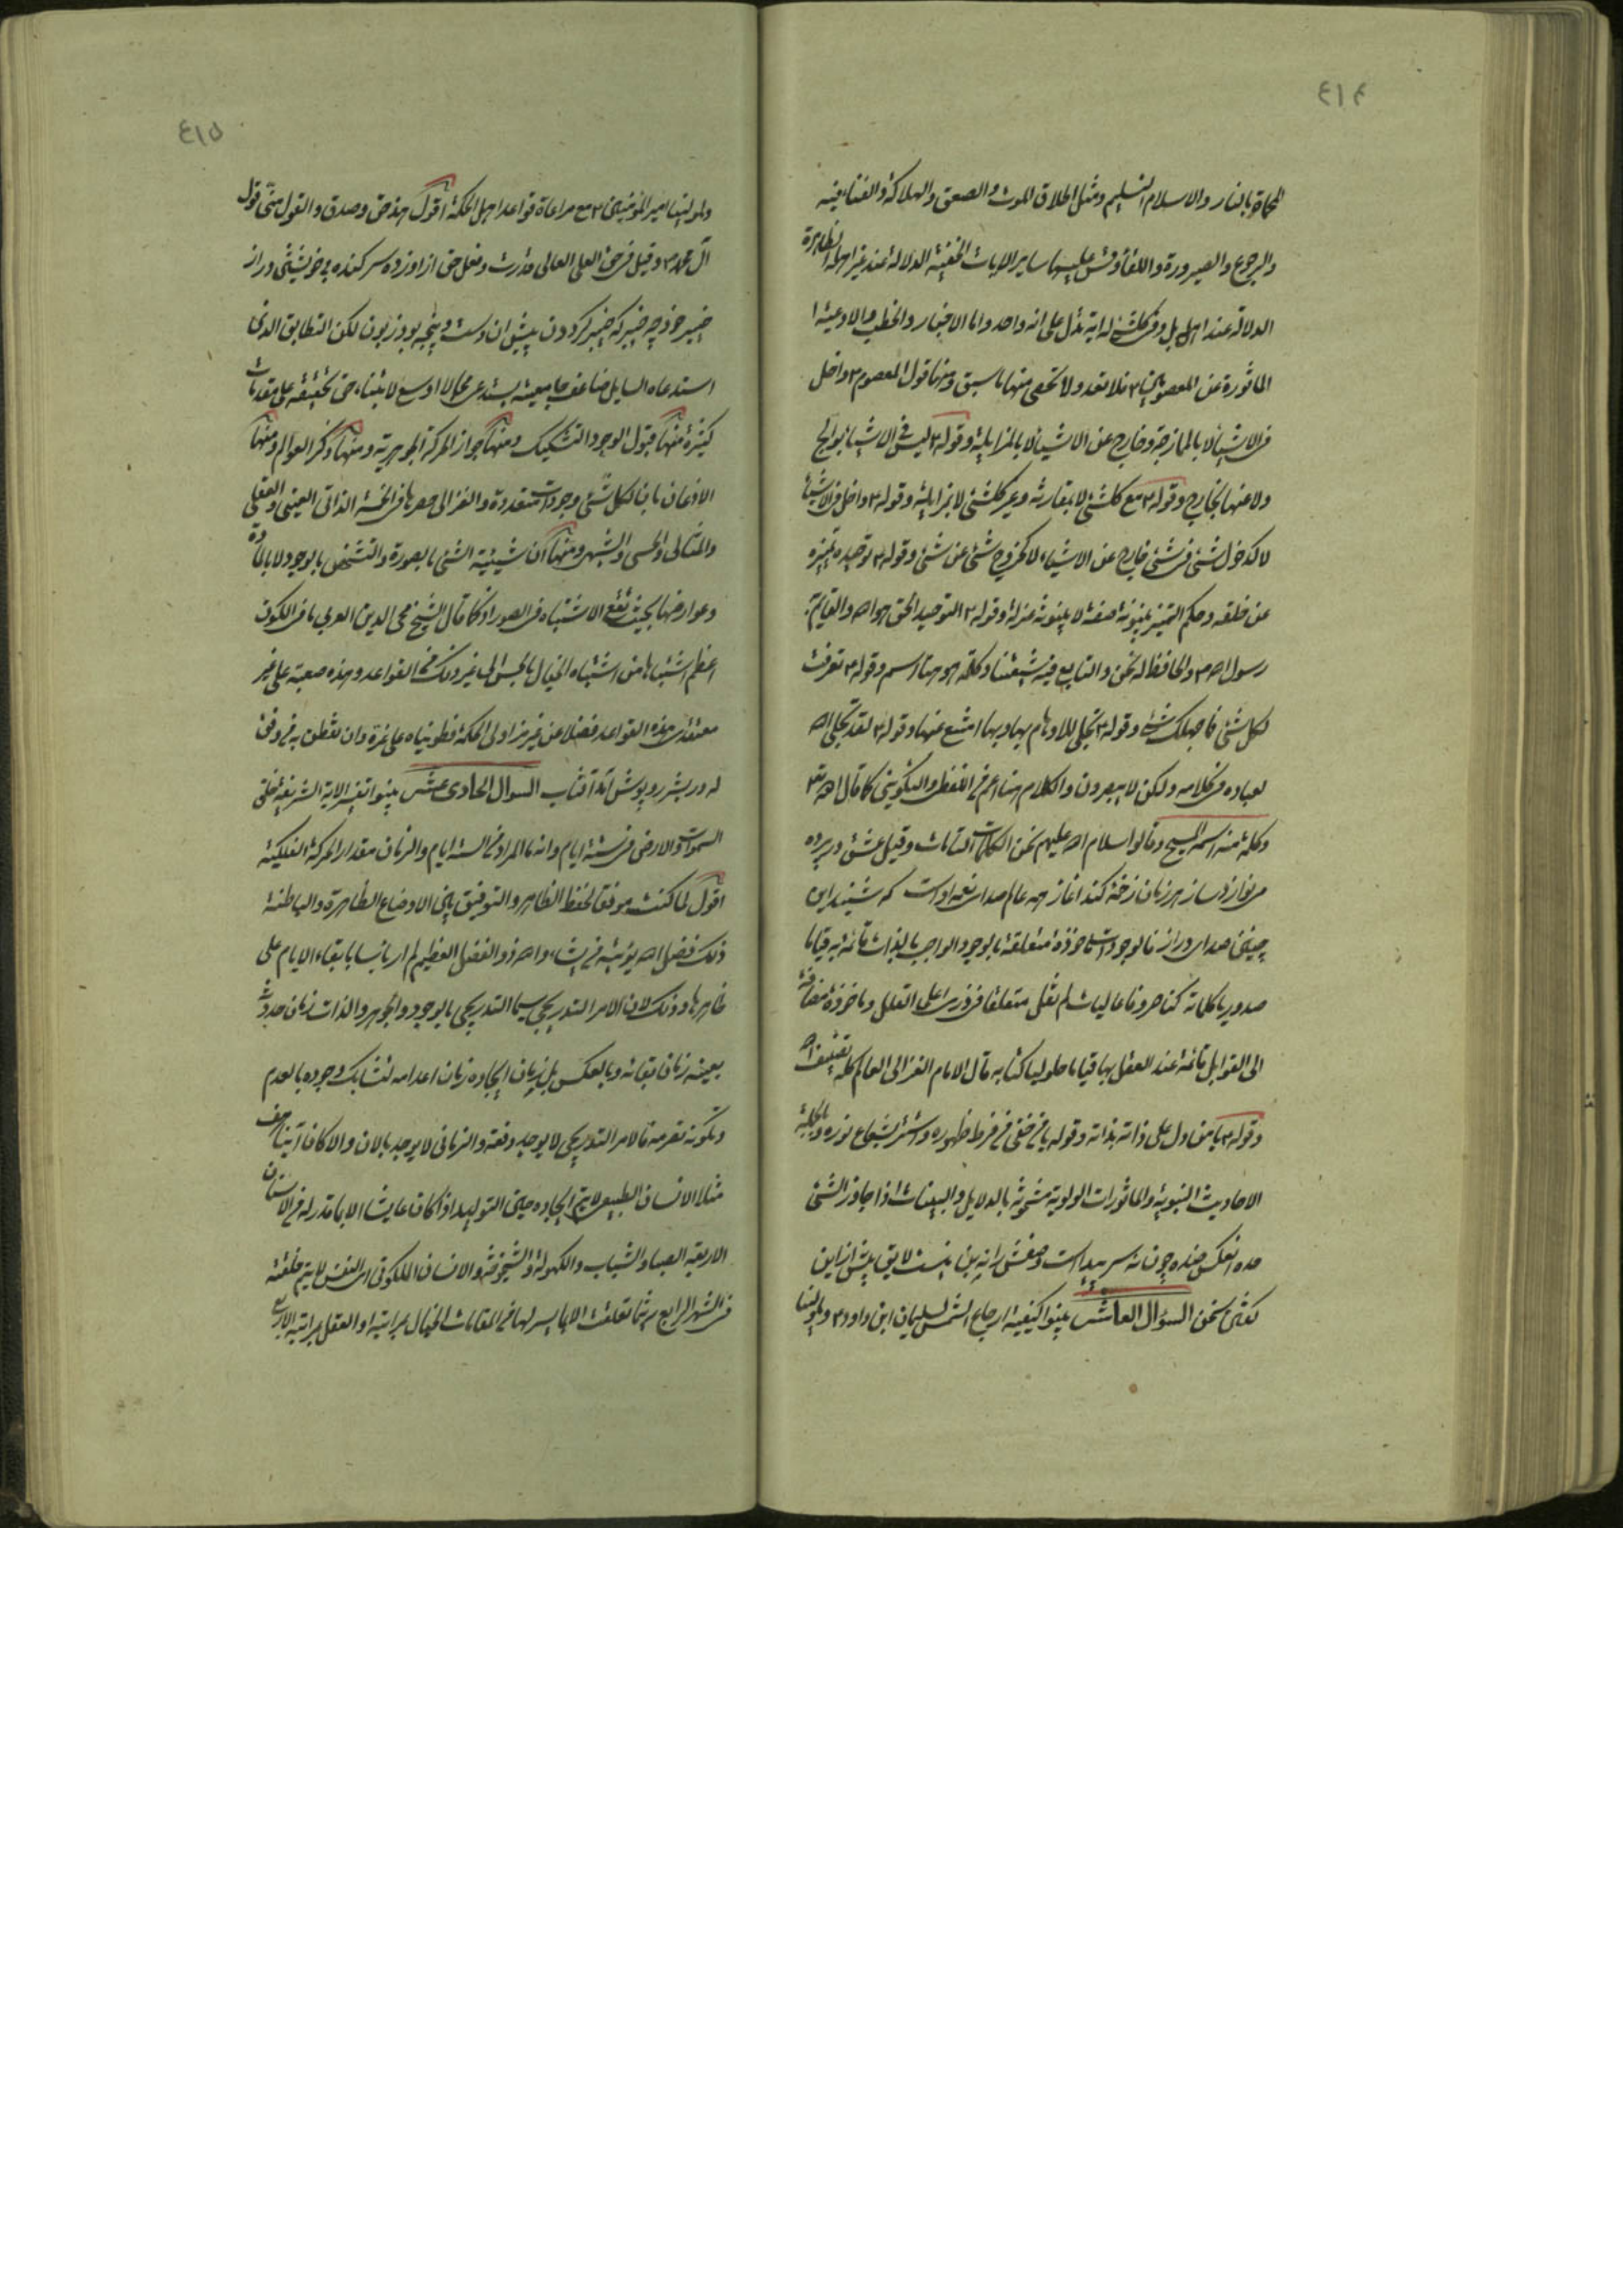 ٤١٤
المحماة بالنار والاسلام التسليم ومثل اطلاق الموت والصعق والهلاكة والفناء فيه
والرجوع والصيرورة واللقاء وقس عليها ساير الايات الخفية الدلالة عند غير اهلها الظاهرة
الدلالة عند اهل بل وفى كلشئ له اية تدل على انه واحد واما الاخبار والخطب والادعية
الماثورة عن المعصومين ع فلا تعد ولا تحصى منها ما سبق ومنها قول المعصوم ع داخل
فى الاشياء لا بالممازجة وخارج عن الاشياء لا بالمزايلة وقوله ع ليس فى الاشياء بوالج
ولا عنها بخارج وقوله ع مع كلشئ لا بمقارنة وغير كلشئ لا بمزايلة وقوله ع داخل فى الاشياء
لا كدخول شئ فى شئ خارج عن الاشياء لا كخروج شئ عن شئ وقوله ع توحيده تميزه
عن خلقه وحكم التميز بينونة صفة لا بينونة عزلة وقوله ع التوحيد الحق هو الله والقايم به
رسول الله ص والحافظ له نحن والتابع فيه شيعتنا وكلمة هو هنا اسم وقوله ع تعرفت
لكل شئ فما جهلك شئ وقوله ع تجلى للاوهام بها وبها امتنع عنها وقوله ع لقد تجلى الله
لعباده فى كلامه ولكن لا يبصرون والكلام هنا اعم من اللفظى والتكوينى كما قال الله تعالى
وكلمة منه اسمه المسيح وقالوا سلام الله عليهم نحن الكلمات التامات وقيل عشق در پرده
مى نوازد ساز هر زمان زخمه كند اغاز همه عالم صداى نغمه اوست كه شنيد اين
چنين صداى دراز فالوجودات ماخوذة متعلقة بالوجود الواجب بالذات قائمة به قياما
صدوريا كلماته كنا حروفا عاليات لم نقل متعلقا فى ذرى اعلى القلل وماخوذة مضافة
الى القوابل قائمة عند العقل بها قياما حلوليا كتابه قال الامام الغزالى العالم كله تصنيف الله
وقوله ع يا من دل على ذاته بذاته وقوله يا من خفى من فرط ظهوره واستتر بشعاع نوره وبالجملة
الاحاديث النبوية والماثورات الولوية مشحونة بالدلايل والبينات اذا جاوز الشئ
حده انعكس ضده چون نه سر پيداست وصفش را نه بن نيست لايق بيش از اين
كفتن سخن السؤال العاشر بينوا كيفية ارجاع الشمس لسليمان ابن داود ع ولمولينا
٤١٥
ولمولينا امير المؤمنين ع مع مراعاة قواعد اهل الحكمة اقول هذا حق وصدق والقول منى قول
آل محمد ص وقيل فى حق العلى العالى قدرت وفعل حق از او زده سر كنده بى خويشتن در از
خيبر خود چه خيبر كه خيبر كردون پيش ان دست وپنجه بود زبون لكن التطابق الذى
استدعاه السايل ضاعف جامعيته يستدعى مجالا اوسع لابتناء حق تحقيقه على مقدمات
كثيرة منها قبول الوجود التشكيك ومنها جواز الحركة الجوهرية ومنها ذكر العوالم ومنها
الاذعان بان لكل شئ وجودات متعددة والغزالى حصرها فى الخمسة الذاتى العينى والعقلى
والمثالى والحسى والشبهى ومنها ان شيئية الشئ بالصورة والتشخص بالوجود لا بالمادة
وعوارضها بحيث تقع الاشتباه فى الصور اذ كما قال الشيخ محى الدين العربى ما فى الكون
اعظم اشتباها من اشتباه الخيال بالحس الى غير ذلك من القواعد وهذه صعبة على غير
معتقدى هذه القواعد فضلا عن غير مزاولى الحكمة فطويناه على غرة وان تفطن به من وفق
له در بشر روپوش آمد آفتاب السوال الحادى عشر بينوا تفسير الاية الشريفة خلق
السموات والارض فى ستة ايام وانه ما المراد من الستة ايام والزمان مقدار الحركة الفلكية
اقول لما كنت موفقا لحفظ الظاهر والتوفيق بين الاوضاع الظاهرة والباطنة
ذلك فضل الله يؤتيه من يشاء والله ذو الفضل العظيم لم ار باسا بابقاء الايام على
ظاهرها وذلك لان الامر التدريجى سيما التدريجى بالوجود والجوهر والذات زمان حدوثه
بعينه زمان بقائه وبالعكس بل زمان ايجاده زمان اعدامه لتشابك وجوده بالعدم
وتكونه تصرمه فالامر التدريجى لا يوجد دفعة والزمانى لا يوجد بالان والا كان آنيا هف
مثلا الانسان الطبيعى لا يتم ايجاده حين التوليد اذا كان عايشا الا بما قدر له من الاسنان
الاربعة الصبا والشباب والكهولة والشيخوخة والانسان الملكوتى اى النفس لا يتم خلقته
فى الشهر الرابع حيثما تعلقت الا بما يسر لها من المقامات الخيال بمراتبه او العقل بمراتبه الاربع